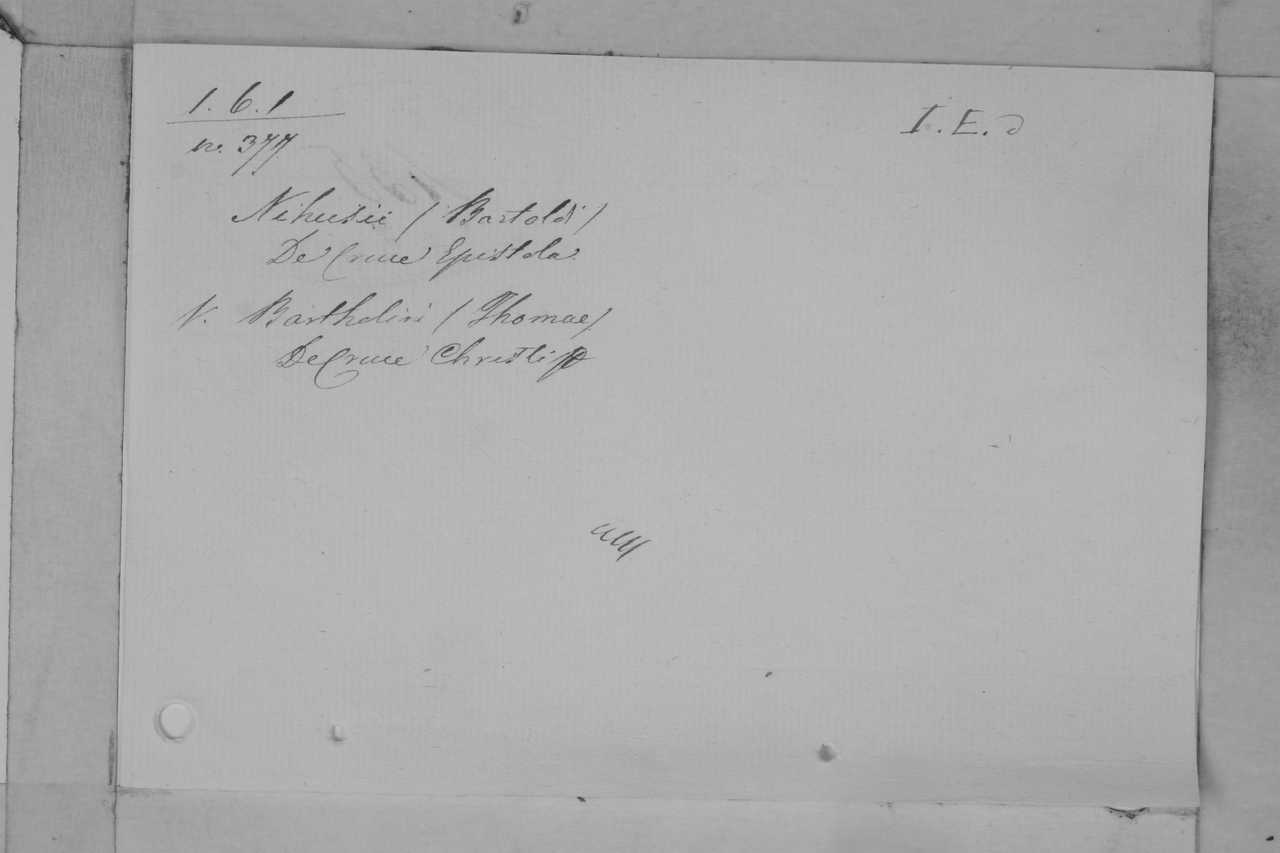 1. 6. 1
I. E. d
no. 377
Nihusii (Bartoldi)
De Cruce Epistola
V. Bartholini (Thomae)
De Cruce Christi